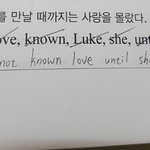 를 만날 때까지는 사랑을 몰랐다.
ove, known, Luke, she, unt
not known love until sh